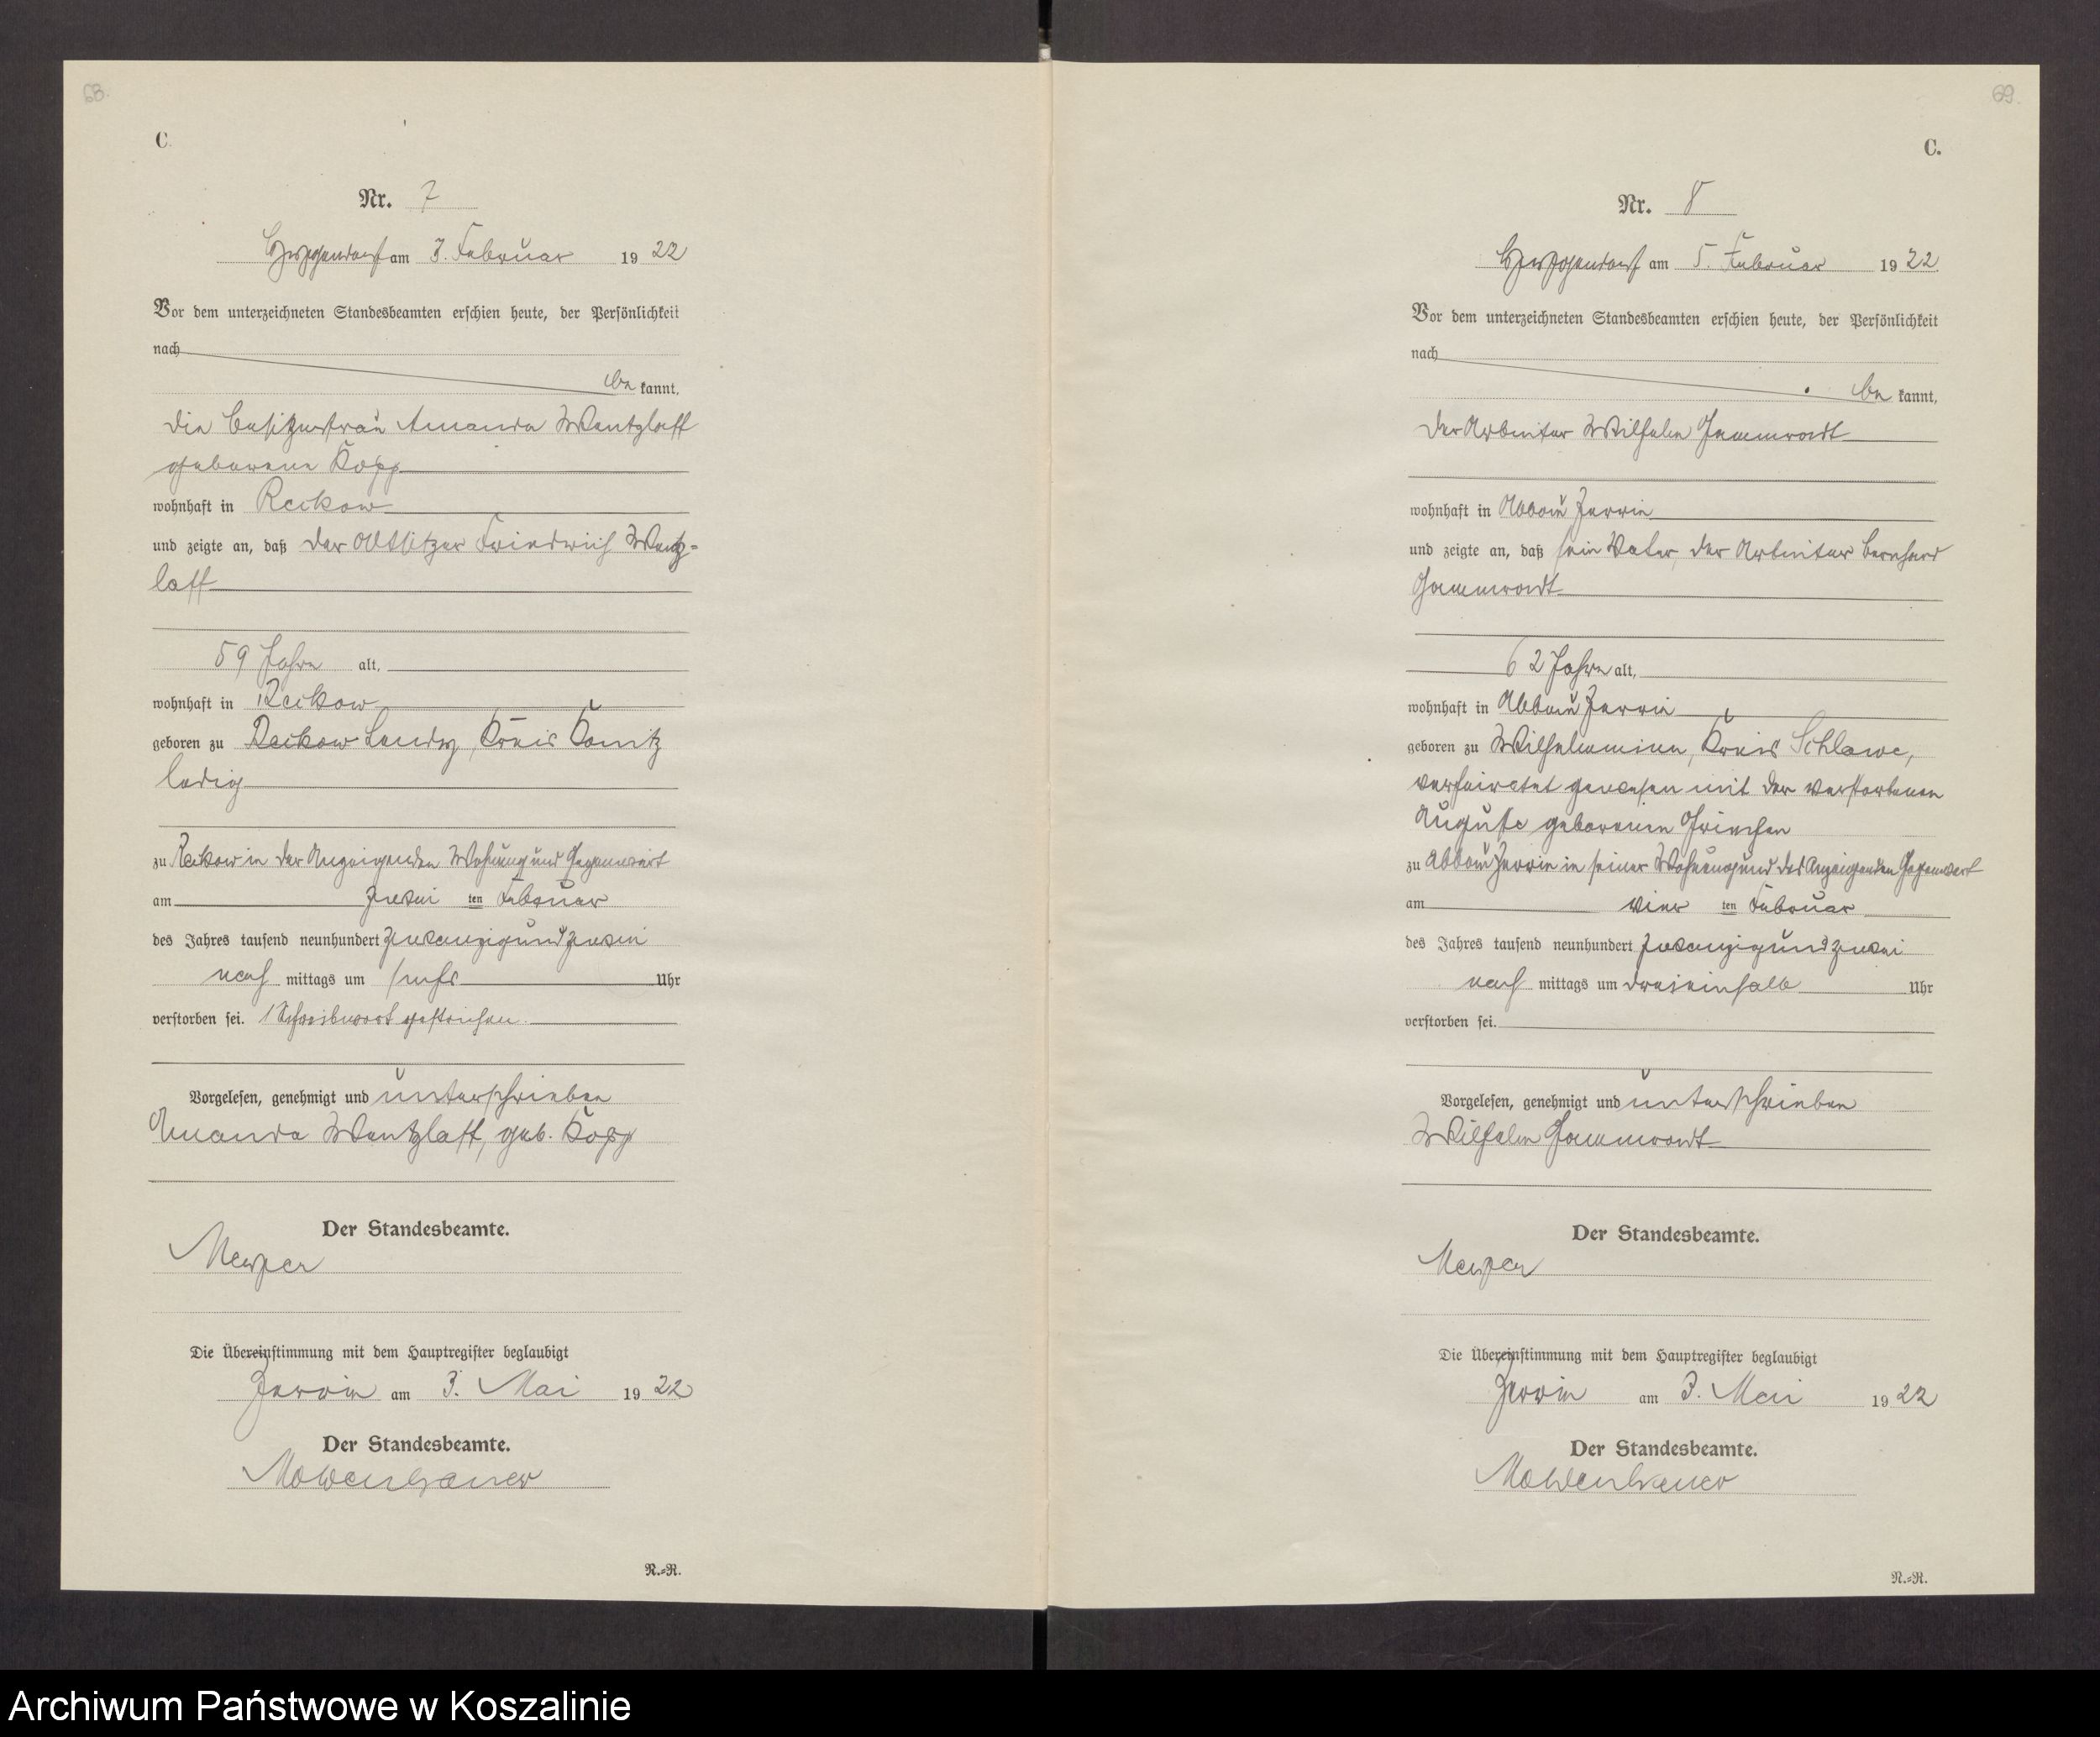 68.
C.
Nr. 7
am 3. Februar 1922
Vor dem unterzeichneten Standesbeamten erschien heute, der Persönlichkeit
nach
be kannt,
die Besitzerfrau Amanda Wentzlaff
geborene Kopp
wohnhaft in Reckow
und zeigte an, daß der Altsitzer Friedrich Wentz-
laff
59 Jahre alt,
wohnhaft in Reckow
geboren zu Reckow Kreis
ledig
zu Reckow in der Anzeigenden Wohnung und Gegenwart
am zwei ten Februar
des Jahres tausend neunhundert zwanzigundzwei
nach mittags um sechs Uhr
verstorben sei. 1 gestrichen.
Vorgelesen, genehmigt und unterschrieben
Amanda Wentzlaff, geb. Kopp
Der Standesbeamte.
Die Übereinstimmung mit dem Hauptregister beglaubigt
Zerrin am 3. Mai 1922
Der Standesbeamte.
R.=R.
69.
C.
Nr. 8
am 5. Februar 1922
Vor dem unterzeichneten Standesbeamten erschien heute, der Persönlichkeit
nach
be kannt,
der Arbeiter Wilhelm
wohnhaft in Abbau Zerrin
und zeigte an, daß sein Vater, der Arbeiter Bernhard
62 Jahre alt,
wohnhaft in Abbau Zerrin
geboren zu Wilhelmine, Kreis Schlawe,
verheiratet gewesen mit der verstorbenen
Auguste geborenen
zu Abbau Zerrin in seiner Wohnung und des Anzeigenden Gegenwart
am vier ten Februar
des Jahres tausend neunhundert zwanzigundzwei
nach mittags um dreieinhalb Uhr
verstorben sei.
Vorgelesen, genehmigt und unterschrieben
Wilhelm
Der Standesbeamte.
Die Übereinstimmung mit dem Hauptregister beglaubigt
Zerrin am 3. Mai 1922
Der Standesbeamte.
R.=R.
Archiwum Państwowe w Koszalinie